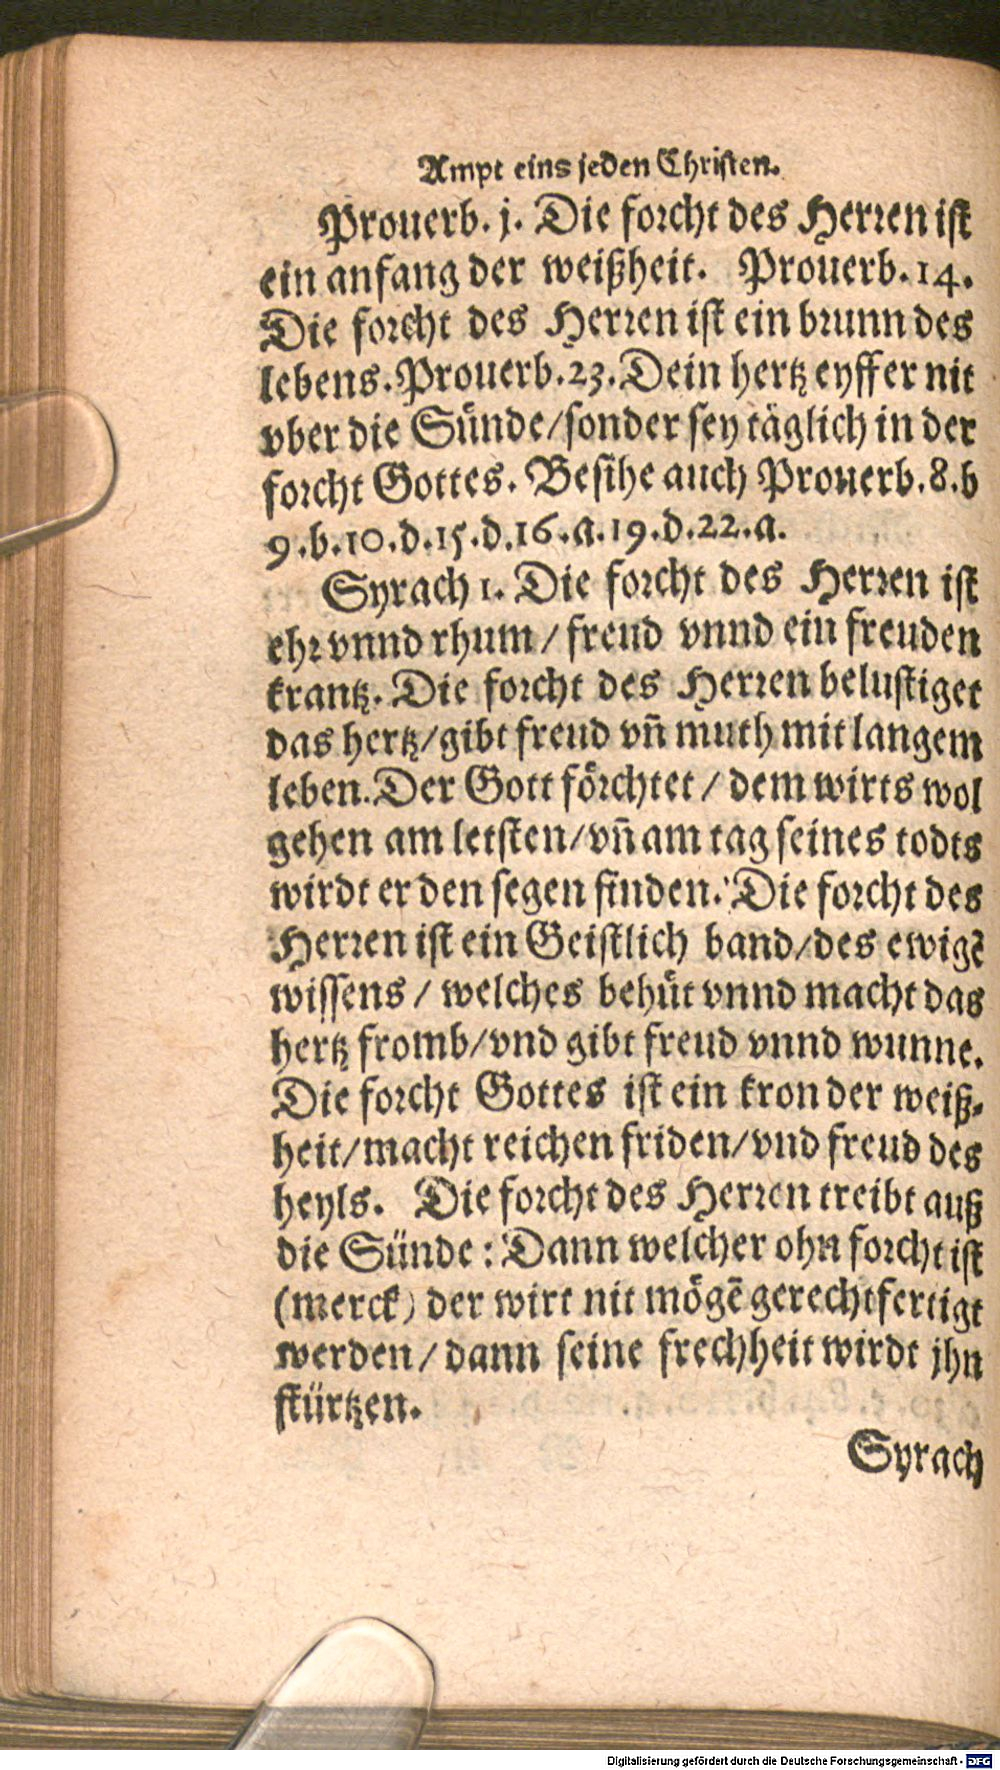 Ampt eins jeden Christen.
Prouerb. j. Die forcht des Herren ist
ein anfang der weißheit. Prouerb. 14.
Die forcht des Herren ist ein brunn des
lebens. Prouerb. 23. Dein hertz eyffer nit
vber die Sünde/sonder sey täglich in der
forcht Gottes. Besihe auch Prouerb. 8. b
9. b. 10. d. 15. d. 16. a. 19. d. 22. a.
Syrach 1. Die forcht des Herren ist
ehr vnnd rhum / freud vnnd ein freuden
krantz. Die forcht des Herren belustiget
das hertz/gibt freud vñ muth mit langem
leben. Der Gott förchtet / dem wirts wol
gehen am letsten/vñ am tag seines todts
wirdt er den segen finden. Die forcht des
Herren ist ein Geistlich band/des ewigē
wissens / welches behüt vnnd macht das
hertz fromb/vnd gibt freud vnnd wunne.
Die forcht Gottes ist ein kron der weiß-
heit/macht reichen friden/vnd freud des
heyls. Die forcht des Herren treibt auß
die Sünde : Dann welcher ohn forcht ist
(merck) der wirt nit mögē gerechtfertigt
werden / dann seine frechheit wirdt jhn
stürtzen.
Syrach
Digitalisierung gefördert durch die Deutsche Forschungsgemeinschaft - DFG